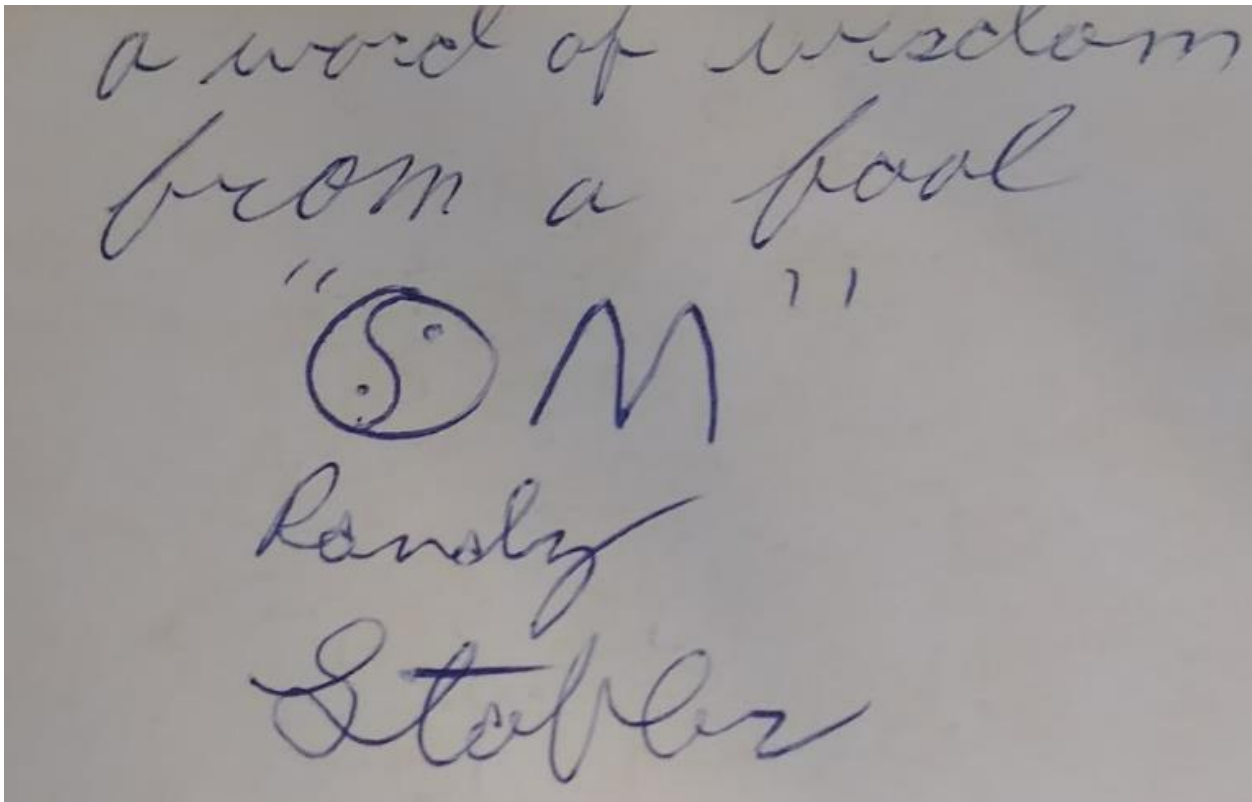 a word of wisdom
from a fool
"☯M"
Randy
Stabler